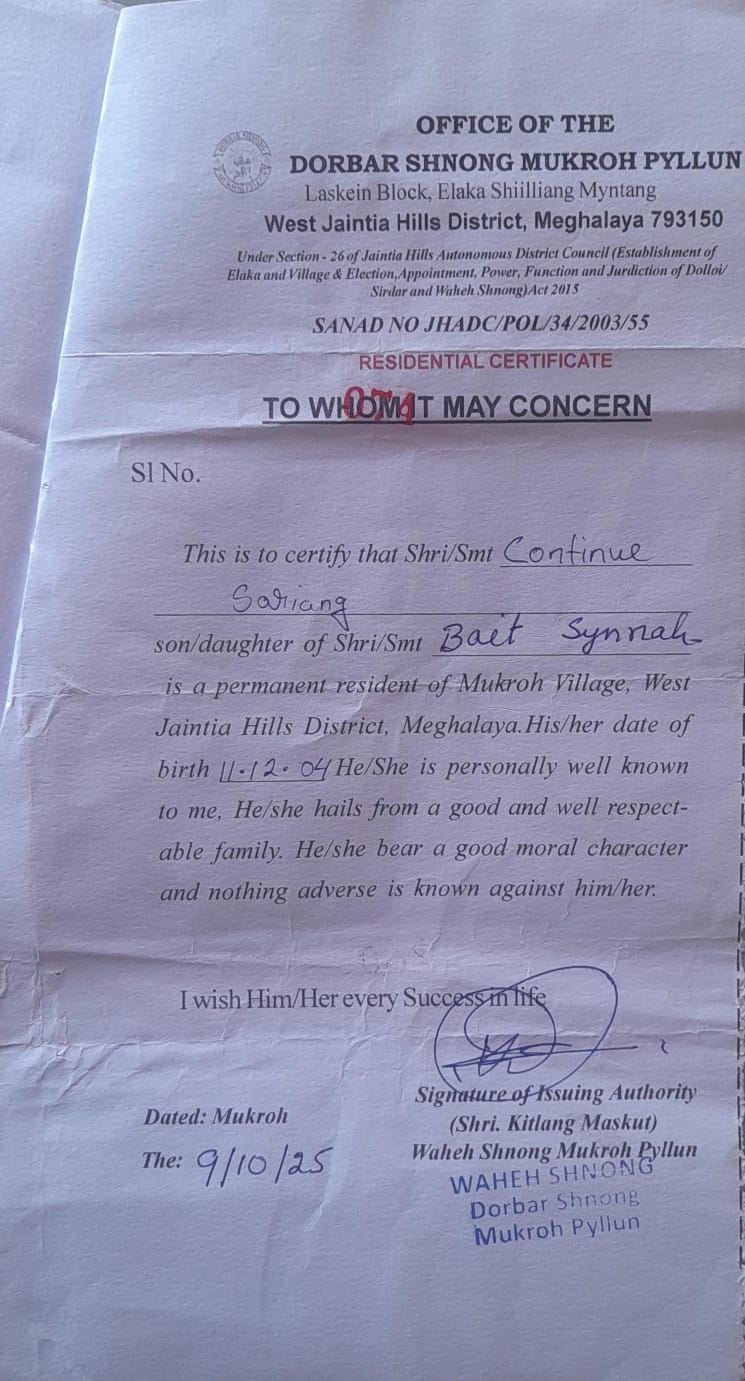 OFFICE OF THE
DORBAR SHNONG MUKROH PYLLUN
Laskein Block, Elaka Shiilliang Myntang
West Jaintia Hills District, Meghalaya 793150
Under Section - 26 of Jaintia Hills Autonomous District Council (Establishment of
Elaka and Village & Election,Appointment, Power, Function and Jurdiction of Dolloi/
Sirdar and Waheh Shnong)Act 2015
SANAD NO JHADC/POL/34/2003/55
RESIDENTIAL CERTIFICATE
TO WHOM IT MAY CONCERN
Sl No.
This is to certify that Shri/Smt Continue
Sariang
son/daughter of Shri/Smt Bait Synnah
is a permanent resident of Mukroh Village, West
Jaintia Hills District, Meghalaya.His/her date of
birth 11.12.04 He/She is personally well known
to me, He/she hails from a good and well respect-
able family. He/she bear a good moral character
and nothing adverse is known against him/her.
I wish Him/Her every Success in life
Signature of Issuing Authority
Dated: Mukroh
(Shri. Kitlang Maskut)
The: 9/10/25
Waheh Shnong Mukroh Pyllun
WAHEH SHNONG
Dorbar Shnong
Mukroh Pyllun